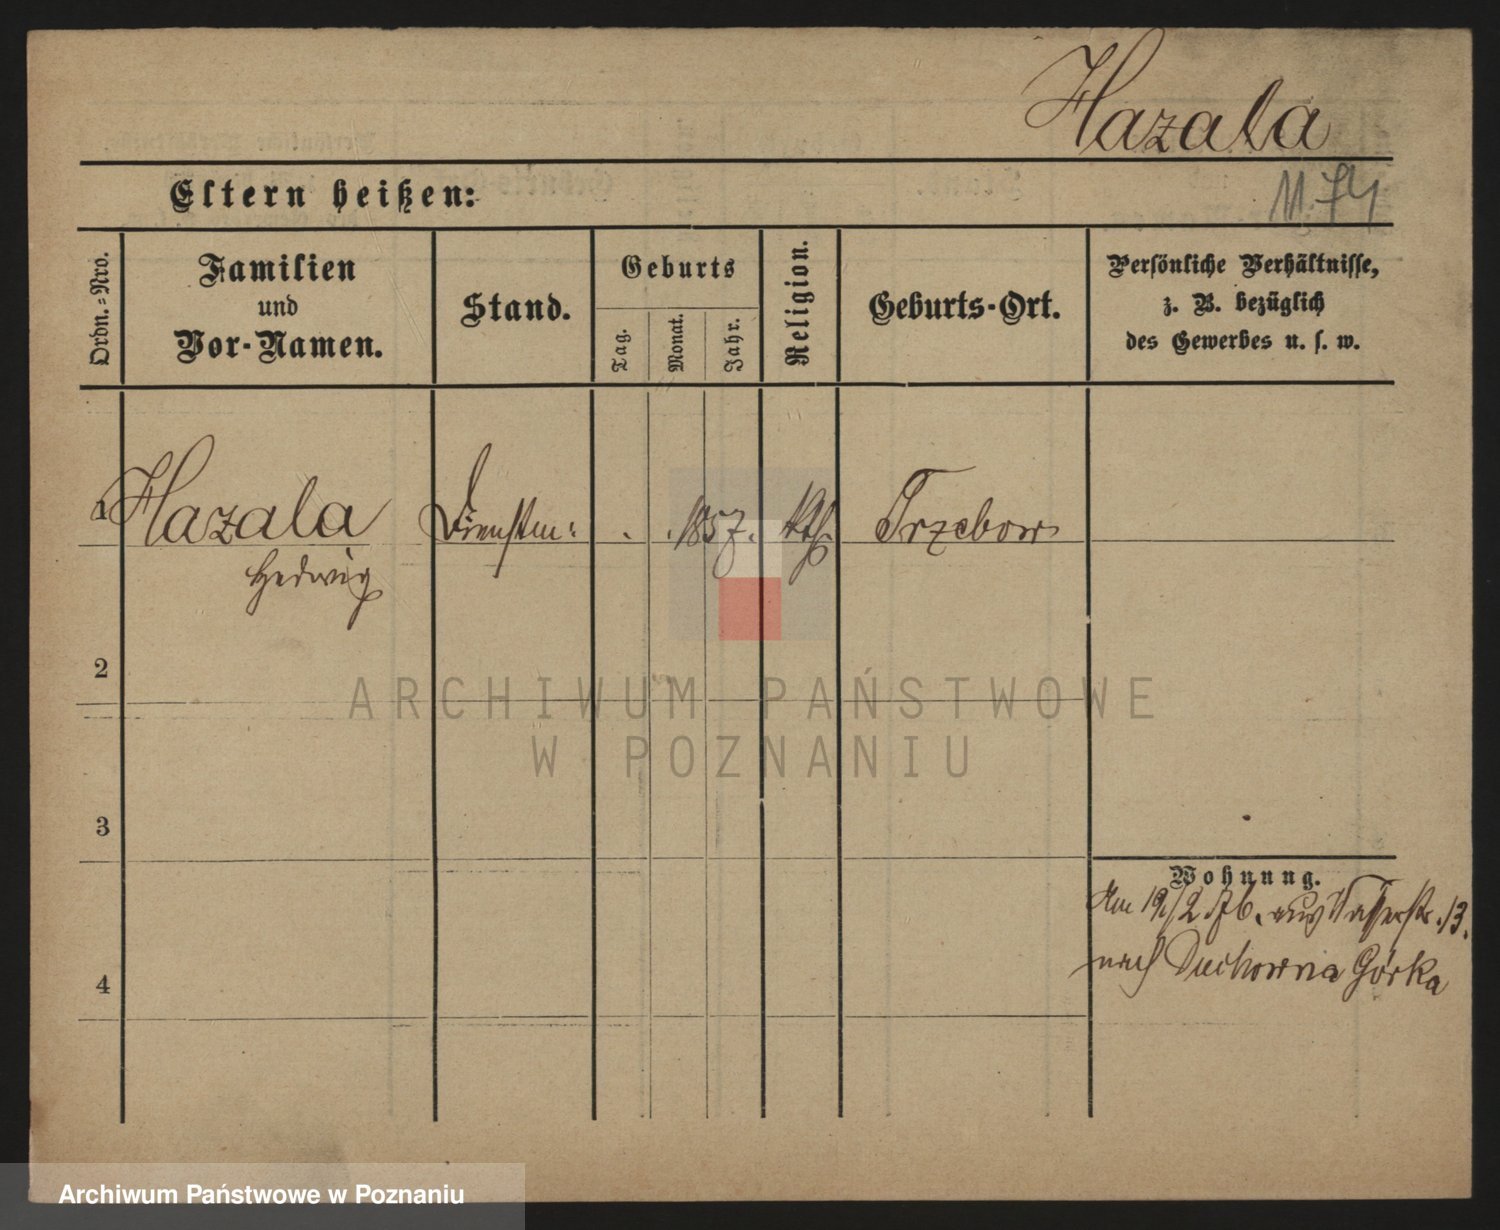 Hazala
11.74
Eltern heißen:
Ordn.-Nro.
Familien
und
Vor-Namen.
Stand.
Geburts
Tag.
Monat.
Jahr.
Religion.
Geburts-Ort.
Persönliche Verhältnisse,
z. B. bezüglich
des Gewerbes u. s. w.
1 Hazala Dienstm: . . 1857. kth. Trzebow
Hedwig
2
ARCHIWUM PAŃSTWOWE
W POZNANIU
3
Wohnung.
Am 19/2 76. aus Wasserstr. 13.
nach Duchowna Górka
4
Archiwum Państwowe w Poznaniu